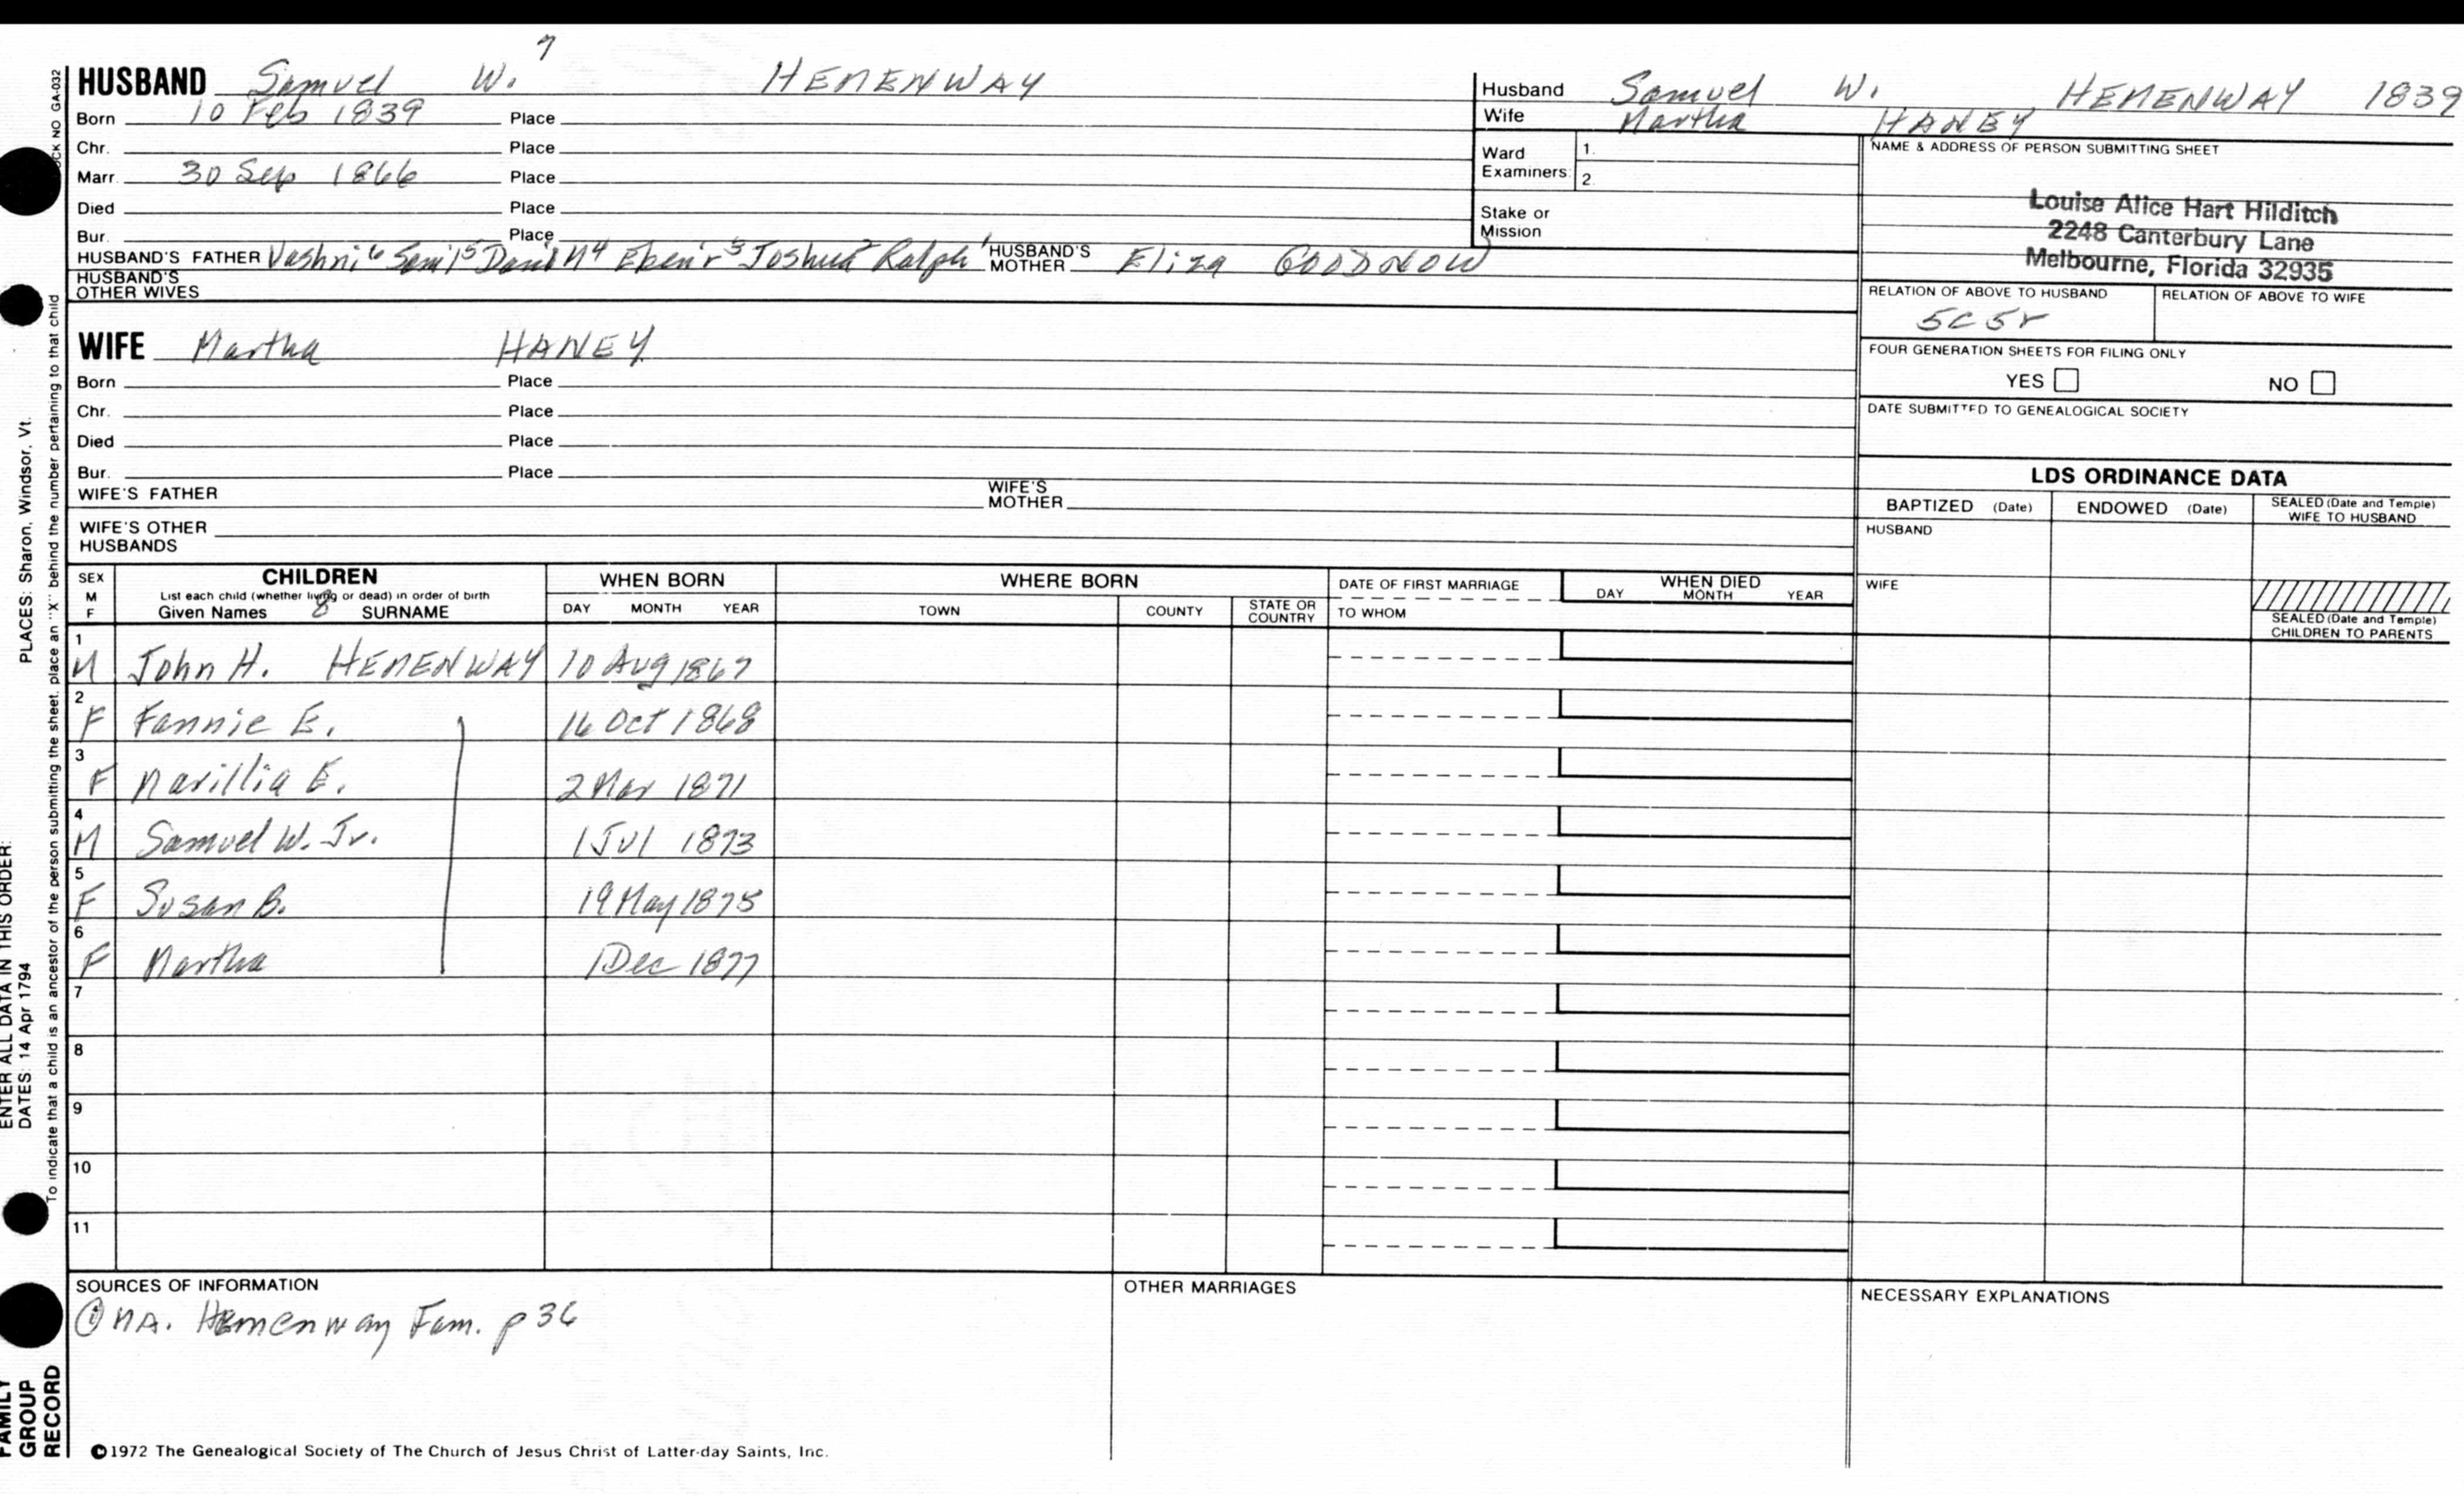 HUSBAND Samuel W. 7 HEMENWAY
Born 10 Feb 1839 Place
Chr. Place
Marr. 30 Sep 1866 Place
Died Place
Bur. Place
HUSBAND'S FATHER Vashni 6 Sam'l 5 Daniel 4 Eben'r 3 Joshua 2 Ralph 1 HUSBAND'S MOTHER Eliza GOODNOW
HUSBAND'S OTHER WIVES
WIFE Martha HANEY
Born Place
Chr. Place
Died Place
Bur. Place
WIFE'S FATHER WIFE'S MOTHER
WIFE'S OTHER HUSBANDS
Husband Samuel W. HEMENWAY 1839
Wife Martha HANEY
Ward Examiners: 1.
2.
Stake or Mission
NAME & ADDRESS OF PERSON SUBMITTING SHEET
Louise Alice Hart Hilditch
2248 Canterbury Lane
Melbourne, Florida 32935
RELATION OF ABOVE TO HUSBAND RELATION OF ABOVE TO WIFE
5C5r
FOUR GENERATION SHEETS FOR FILING ONLY
YES NO
DATE SUBMITTED TO GENEALOGICAL SOCIETY
LDS ORDINANCE DATA
BAPTIZED (Date) ENDOWED (Date) SEALED (Date and Temple) WIFE TO HUSBAND
HUSBAND
WIFE
SEALED (Date and Temple) CHILDREN TO PARENTS
SEX M F
CHILDREN
List each child (whether living or dead) in order of birth
Given Names 8 SURNAME
WHEN BORN
DAY MONTH YEAR
WHERE BORN
TOWN COUNTY STATE OR COUNTRY
DATE OF FIRST MARRIAGE
TO WHOM
WHEN DIED
DAY MONTH YEAR
1 M John H. HEMENWAY 10 Aug 1867
2 F Fannie E. 16 Oct 1868
3 F Marillia E. 2 Mar 1871
4 M Samuel W. Jr. 1 Jul 1873
5 F Susan B. 19 May 1875
6 F Martha 1 Dec 1877
7
8
9
10
11
SOURCES OF INFORMATION
① MA. Hemenway Fam. p 36
OTHER MARRIAGES
NECESSARY EXPLANATIONS
©1972 The Genealogical Society of The Church of Jesus Christ of Latter-day Saints, Inc.
FAMILY
GROUP
RECORD
ENTER ALL DATA IN THIS ORDER:
DATES: 14 Apr 1794 PLACES: Sharon, Windsor, Vt.
To indicate that a child is an ancestor of the person submitting the sheet, place an "X" behind the number pertaining to that child
NO GA-032